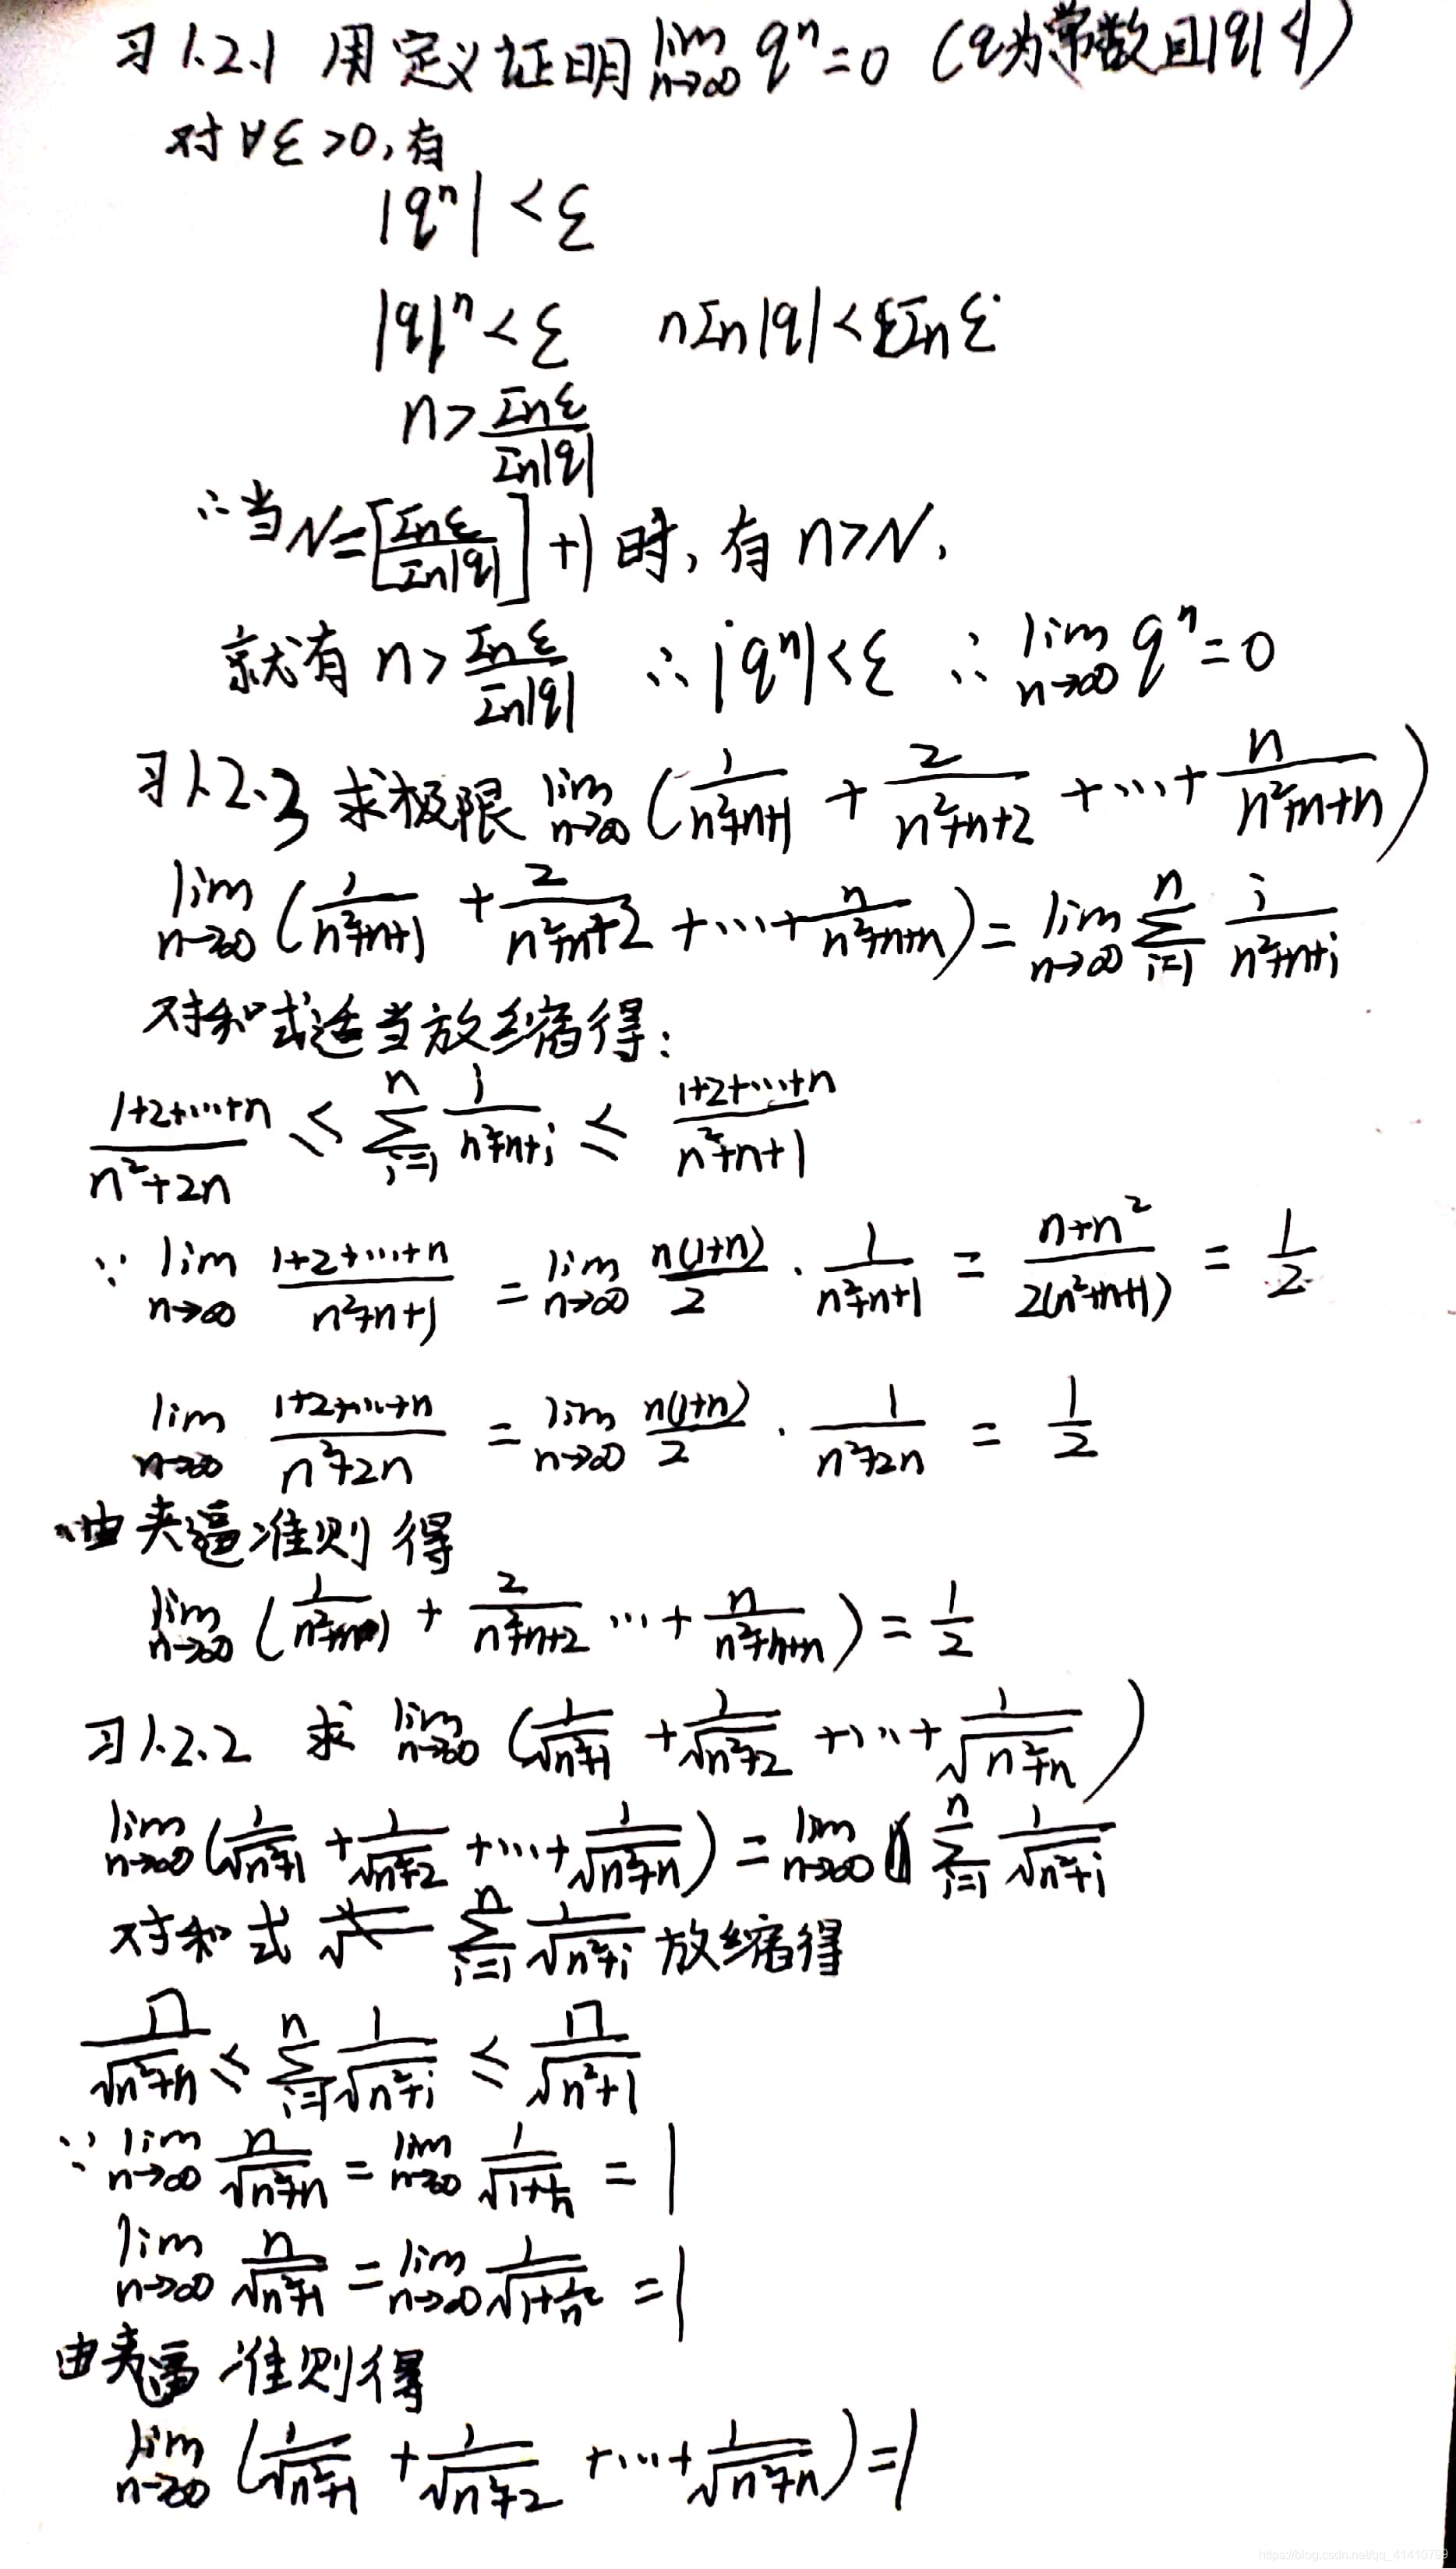 习1.2.1 用定义证明 lim_{n→∞} qⁿ=0 (q为常数且|q|<1)
对∀ε>0,有
|qⁿ|<ε
|q|ⁿ<ε  nIn|q|<Inε
n>Inε/In|q|
∴当N=[Inε/In|q|]+1时,有n>N,
就有n>Inε/In|q| ∴|qⁿ|<ε ∴lim_{n→∞} qⁿ=0
习1.2.3 求极限 lim_{n→∞} (1/(n²+n+1) + 2/(n²+n+2) + ⋯ + n/(n²+n+n))
lim_{n→∞} (1/(n²+n+1) + 2/(n²+n+2) + ⋯ + n/(n²+n+n)) = lim_{n→∞} ∑_{i=1}^{n} i/(n²+n+i)
对和式适当放缩得:
(1+2+⋯+n)/(n²+2n) ≤ ∑_{i=1}^{n} i/(n²+n+i) ≤ (1+2+⋯+n)/(n²+n+1)
∵ lim_{n→∞} (1+2+⋯+n)/(n²+n+1) = lim_{n→∞} n(1+n)/2 · 1/(n²+n+1) = (n+n²)/(2(n²+n+1)) = 1/2
lim_{n→∞} (1+2+⋯+n)/(n²+2n) = lim_{n→∞} n(1+n)/2 · 1/(n²+2n) = 1/2
由夹逼准则得
lim_{n→∞} (1/(n²+n+1) + 2/(n²+n+2) ⋯ + n/(n²+n+n)) = 1/2
习1.2.2 求 lim_{n→∞} (1/√(n²+1) + 1/√(n²+2) + ⋯ + 1/√(n²+n))
lim_{n→∞} (1/√(n²+1) + 1/√(n²+2) + ⋯ + 1/√(n²+n)) = lim_{n→∞} ∑_{i=1}^{n} 1/√(n²+i)
对和式 ∑_{i=1}^{n} 1/√(n²+i) 放缩得
n/√(n²+n) ≤ ∑_{i=1}^{n} 1/√(n²+i) ≤ n/√(n²+1)
∵ lim_{n→∞} n/√(n²+n) = lim_{n→∞} 1/√(1+1/n) = 1
lim_{n→∞} n/√(n²+1) = lim_{n→∞} 1/√(1+1/n²) = 1
由夹逼准则得
lim_{n→∞} (1/√(n²+1) + 1/√(n²+2) + ⋯ + 1/√(n²+n)) = 1